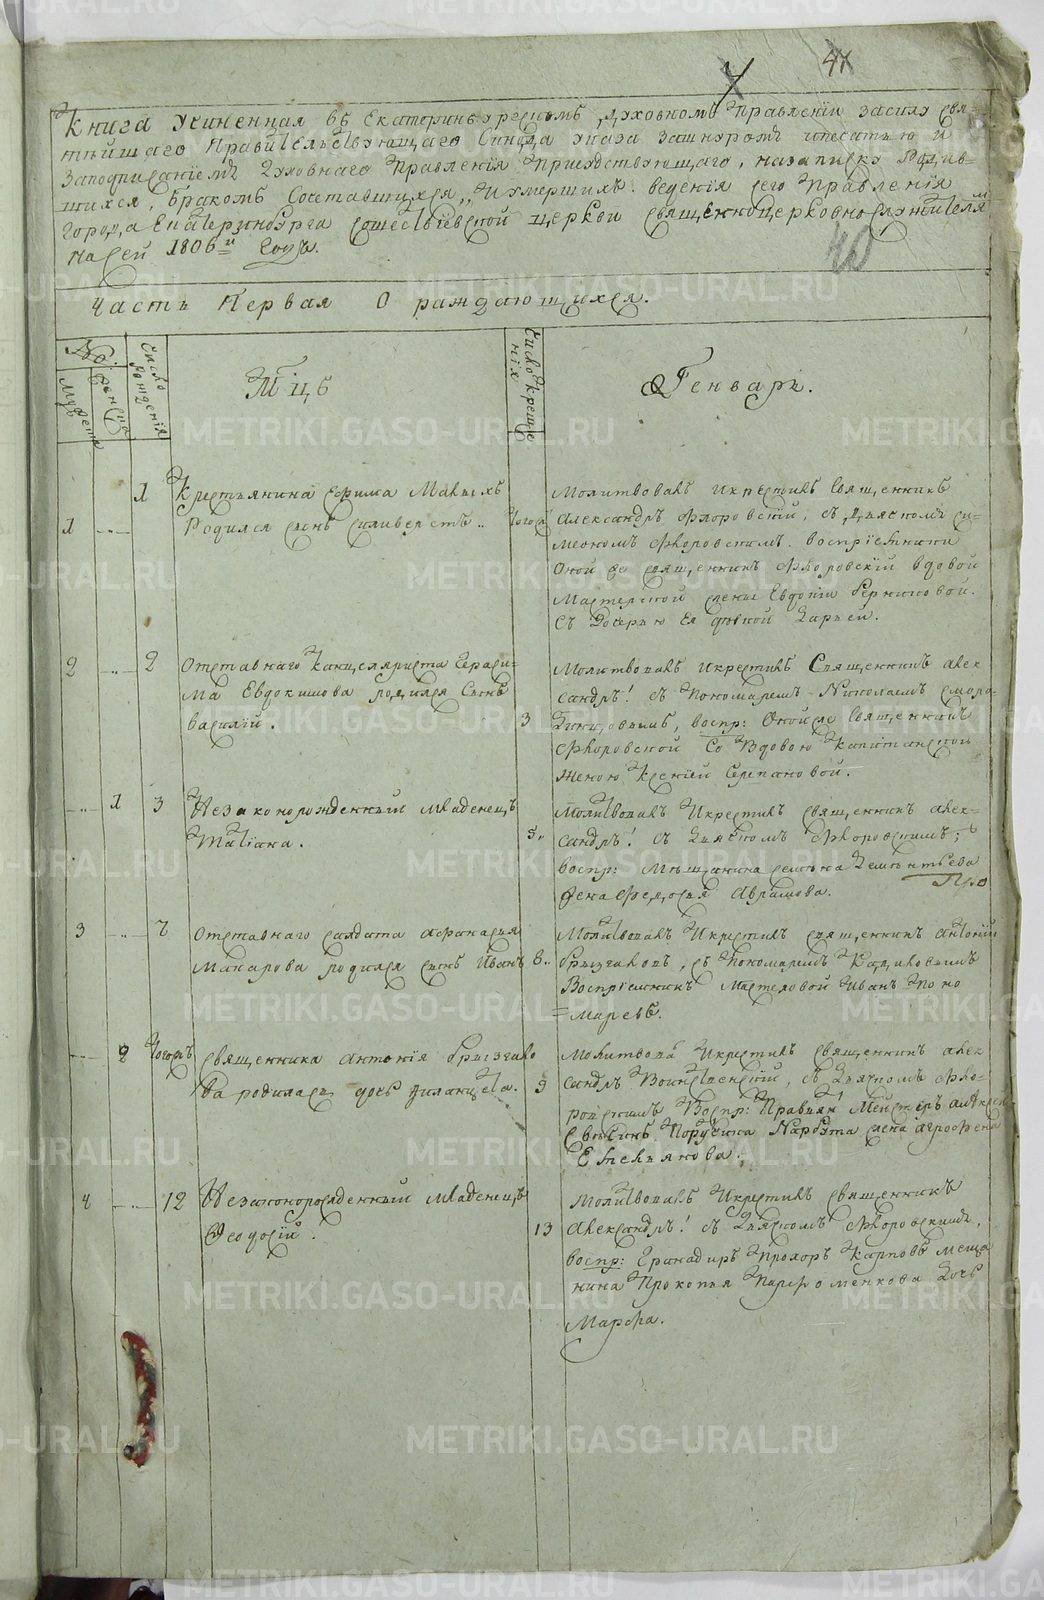 41
Книга Учиненная въ Екатеринбургскомъ Духовномъ Правленіи засилу Свя-
тѣйшаго Правительствующаго Синода указа зашнуромъ ипечатью и
Заподписаніемъ Духовнаго Правленія Присудствующаго, назаписку Родив-
шихся, Бракомъ Сочетавшихся, Иумершихъ. веденія сего Правленія
города Екатеринбурга сошествіевской церкви священноцерковнослужителям
На сей 1806й Годъ.
40
Часть Первая О раждающихся.
No:
Мужеска
Женска
Число рожденія
М-цъ
Число крещенія
Генварь.
1 1 Крестьянина Ефима
Родился сынъ Силиверстъ..
Тогожъ
Молитвовалъ икрестилъ Священникъ
Александръ Флоровскій, съ Дьячкомъ Си-
меономъ Флоровскимъ. воспріемники
Оной же священникъ Флоровскій вдовой
Мастерской жены Евдокіи
Съ Дочерью Ея дѣвкой Дарьей.
2 2 Отставнаго Канцеляриста Гераси-
ма Евдокимова родился Сынъ
василій.
3
Молитвовалъ икрестилъ Священникъ алек
сандръ! съ Пономаремъ Николаемъ Сморо-
динцовымъ, воспр: Оной же Священникъ
Флоровской Со Вдовою Капитанскою
Женою Ксеніей Степановой.
1 3 Незаконорожденный младенецъ
Татіана.
5.
Молитвовалъ Икрестилъ священникъ алек-
сандръ! съ Дьячкомъ Флоровскимъ;
воспр: Мѣщанина семена Дементьева
жена Федосья Абрамова.
3 7 Отставнаго салдата афанасья
Макарова родился сынъ Иванъ
8..
Молитвовалъ Икрестилъ священникъ антоній
Брызгаловъ, съ Пономаремъ Кадиковымъ
Воспріемникъ Мастеровой Иванъ Поно
=маревъ.
2 Тогожъ Священника антонія Брызгало
ва родилась дочь
9
Молитвовалъ Икрестилъ священникъ алек
сандръ Воинственскій, съ Дьячкомъ Фло-
ровскимъ Воспр: Мейстеръ
Поручика жена агрофена
Емельянова.
4 12 Незаконорожденный младенецъ
Феодосій.
13
Молитвовалъ Икрестилъ священникъ
Александръ! съ Дьячкомъ Флоровскимъ,
воспр: Гранадиръ Прохоръ Карповъ меща
нина Прокопья Пархоменкова Дочь
Марфа.
METRIKI.GASO-URAL.RU